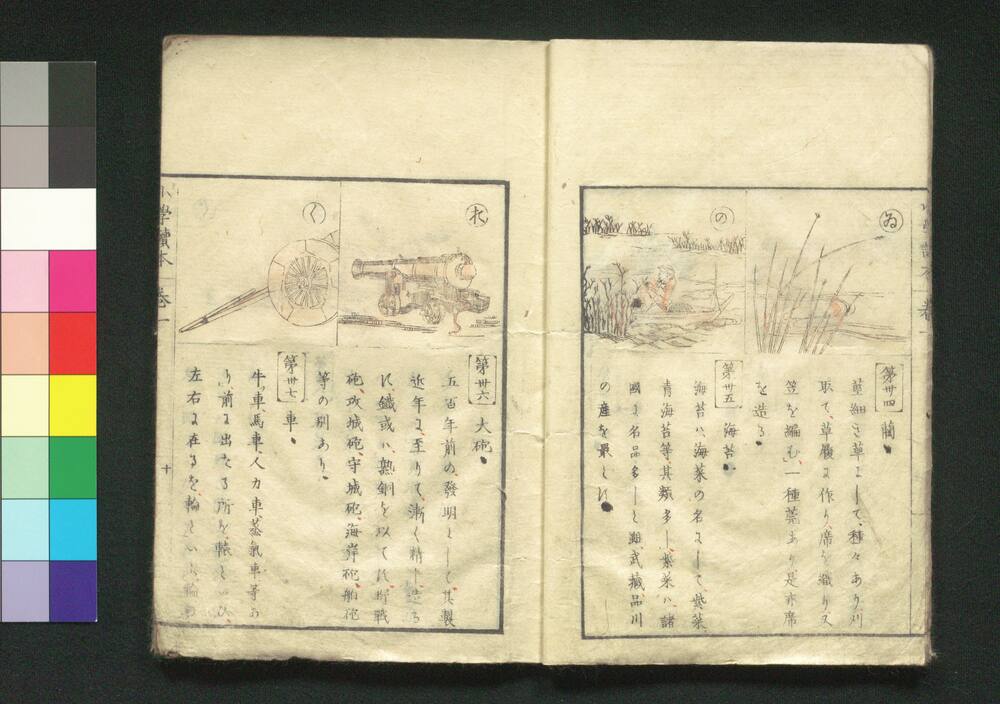 ゐ
の
第卅四 藺
莖細き草にして、種々あり、刈
取て、草履に作り、席を織り、又
笠を編む、一種莞あり是亦席
を造る
第卅五 海苔
海苔ハ海菜の名にして、紫菜、
青海苔等、其類多し、紫菜ハ、諸
國に名品多しと雖武藏品川
の産を最とす
小學讀本 巻一
お
く
第卅六 大砲
五百年前の發明にして、其製
近年に至りて、漸く精し、造る
に鐵或ハ、熟銅を以てす、野戰
砲、攻城砲、守城砲、海岸砲、船砲
等の別あり
第卅七 車
牛車、馬車、人力車、蒸氣車等あ
り、前に出たる所を轅といひ、
左右に在るを、輪といふ、輪の
小學讀本 巻一
十